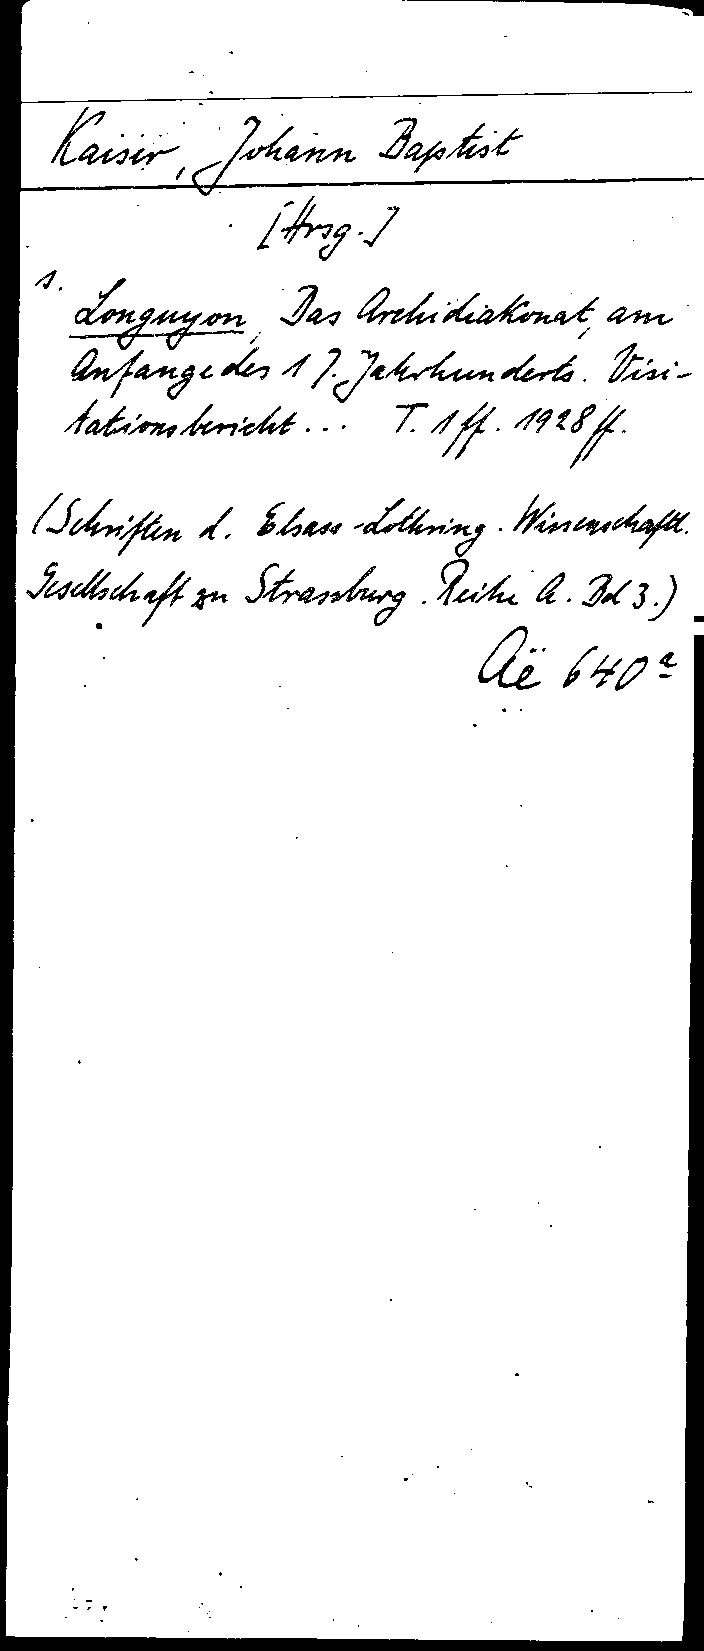 Kaiser, Johann Baptist
[Hrsg.]
s.
Longuyon, Das Archidiakonat, am
Anfange des 17. Jahrhunderts. Visi-
tationsbericht... T. 1 ff. 1928 ff.
(Schriften d. Elsass-Lothring. Wissenschaftl.
Gesellschaft zu Strassburg. Reihe A. Bd 3.)
Aë 640ª